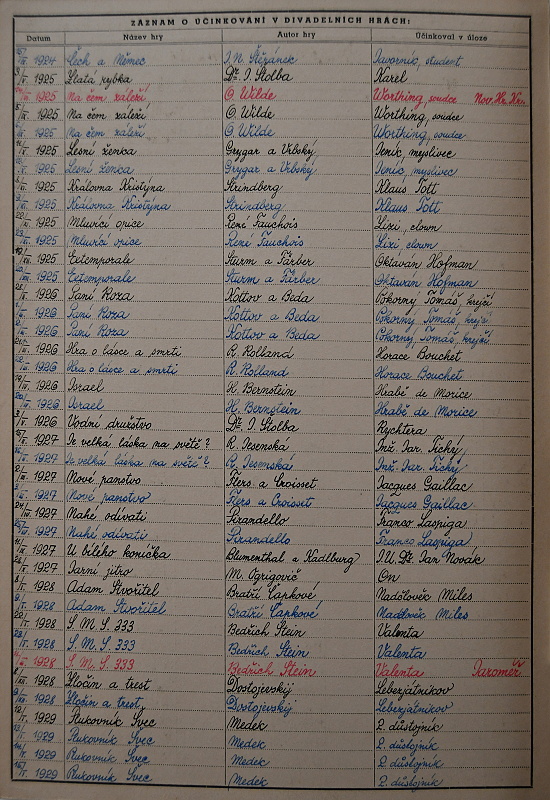 ZÁZNAM O ÚČINKOVÁNÍ V DIVADELNÍCH HRÁCH:
Datum Název hry Autor hry Účinkoval v úloze
1924 Čech a Němec J. N. Štěpánek Javorník, student
1925 Zlatá rybka Dr. J. Štolba Karel
1925 Na čem záleží O. Wilde Worthing, soudce Nov. Hr. Kr.
1925 Na čem záleží O. Wilde Worthing, soudce
1925 Na čem záleží O. Wilde Worthing, soudce
1925 Lesní ženka Grygar a Vrbský Jeník, myslivec
1925 Lesní ženka Grygar a Vrbský Jeník, myslivec
1925 Královna Kristýna Strindberg Klaus Tott
1925 Královna Kristýna Strindberg Klaus Tott
1925 Mluvící opice René Fauchois Lixi clown
1925 Mluvící opice René Fauchois Lixi clown
1925 Extemporale Sturm a Färber Oktavián Hofman
1925 Extemporale Sturm a Färber Oktavián Hofman
1926 Paní Roza Kottov a Beda Pokorný Tomáš, krejčí
1926 Paní Roza Kottov a Beda Pokorný Tomáš, krejčí
1926 Paní Roza Kottov a Beda Pokorný Tomáš, krejčí
1926 Hra o lásce a smrti R. Rolland Horace Bouchet
1926 Hra o lásce a smrti R. Rolland Horace Bouchet
1926 Israel H. Bernstein Hrabě de Morice
1926 Israel H. Bernstein Hrabě de Morice
1926 Vodní družstvo Dr. J. Štolba Rychtera
1927 Je velká láska na světě? R. Jesenská Inž. Jar. Tichý
1927 Je velká láska na světě? R. Jesenská Inž. Jar. Tichý
1927 Nové panstvo Flers a Croisset Jacques Gaillac
1927 Nové panstvo Flers a Croisset Jacques Gaillac
1927 Nahé odívati Pirandello Franco Laspiga
1927 Nahé odívati Pirandello Franco Laspiga
1927 U bílého koníčka Blumenthal a Kadlburg J. U. Dr. Jan Novák
1927 Jarní jitro M. Ogrizovič On
1928 Adam Stvořitel Bratří Čapkové Nadčlověk Miles
1928 Adam Stvořitel Bratří Čapkové Nadčlověk Miles
1928 S. M. S. 333 Bedřich Stein Valenta
1928 S. M. S. 333 Bedřich Stein Valenta
1928 S. M. S. 333 Bedřich Stein Valenta Jaroměř
1928 Zločin a trest Dostojevský Lebezjátnikov
1928 Zločin a trest Dostojevský Lebezjátnikov
1929 Plukovník Švec Medek 2. důstojník
1929 Plukovník Švec Medek 2. důstojník
1929 Plukovník Švec Medek 2. důstojník
1929 Plukovník Švec Medek 2. důstojník